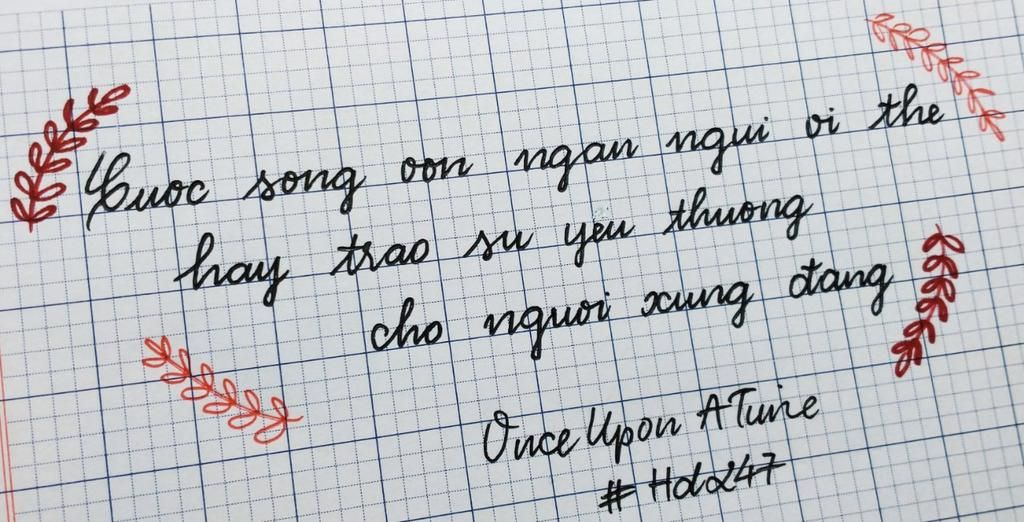 Cuoc song von ngan ngui vi the
hay trao su yeu thuong
cho nguoi xung đang
Once Upon A Time
# Hda247